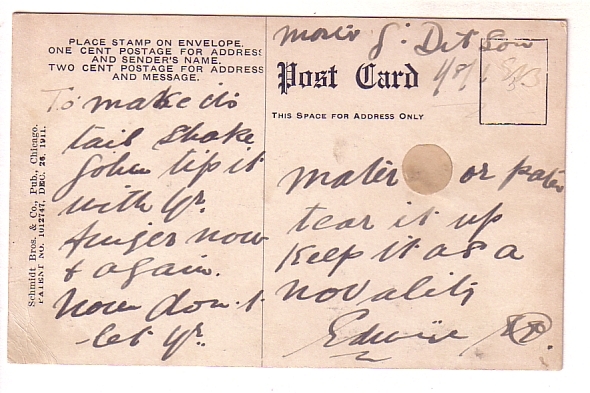 PLACE STAMP ON ENVELOPE.
ONE CENT POSTAGE FOR ADDRESS
AND SENDER'S NAME.
TWO CENT POSTAGE FOR ADDRESS
AND MESSAGE.
To make its
tail shake
John tip it
with yr.
finger now
& again.
Now don't
let yr.
Schmidt Bros. & Co., Pub., Chicago.
PATENT NO. 1012747, DEC. 26, 1911.
Post Card
THIS SPACE FOR ADDRESS ONLY
mater or pater
tear it up
Keep it as a
novality